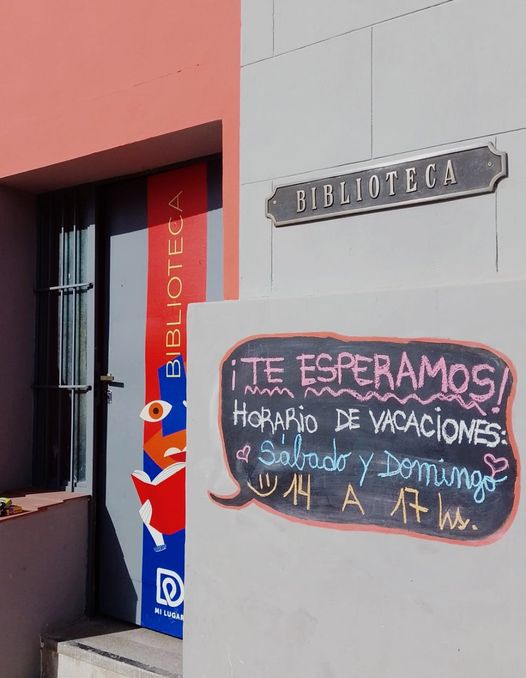 BIBLIOTECA
BIBLIOTECA
MI LUGAR
¡TE ESPERAMOS!
HORARIO DE VACACIONES:
Sábado y Domingo
14 A 17 hs.